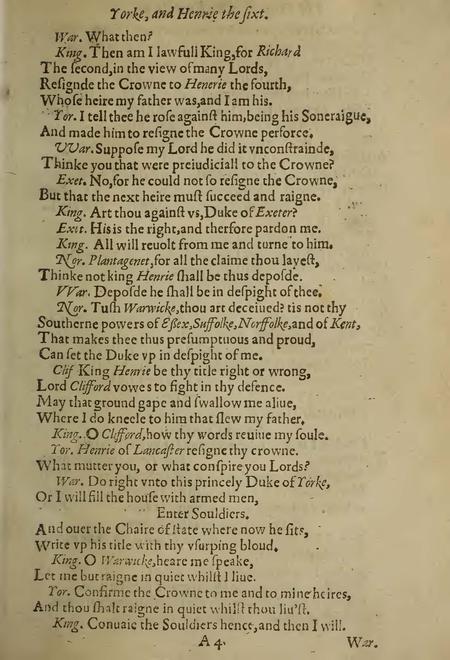 Yorke, and Henrie the ſixt.
War. What then?
King. Then am I lawfull King, for Richard
The ſecond, in the view of many Lords,
Reſignde the Crowne to Henerie the fourth,
Whoſe heire my father was, and I am his.
Yor. I tell thee he roſe againſt him, being his Soueraigne,
And made him to reſigne the Crowne perforce.
VVar. Suppoſe my Lord he did it vnconſtrainde,
Thinke you that were preiudiciall to the Crowne?
Exet. No, for he could not ſo reſigne the Crowne,
But that the next heire muſt ſucceed and raigne.
King. Art thou againſt vs, Duke of Exeter?
Exet. His is the right, and therfore pardon me.
King. All will reuolt from me and turne to him.
Nor. Plantagenet, for all the claime thou layeſt,
Thinke not king Henrie ſhall be thus depoſde.
VVar. Depoſde he ſhall be in deſpight of thee.
Nor. Tuſh Warwicke, thou art deceiued? tis not thy
Southerne powers of Eſſex, Suffolke, Norffolke, and of Kent,
That makes thee thus preſumptuous and proud,
Can ſet the Duke vp in deſpight of me.
Clif King Henrie be thy title right or wrong,
Lord Clifford vowes to fight in thy defence.
May that ground gape and ſwallow me aliue,
Where I do kneele to him that ſlew my father.
King. O Clifford, how thy words reuiue my ſoule.
Yor. Henrie of Lancaſter reſigne thy crowne.
What mutter you, or what conſpire you Lords?
War. Do right vnto this princely Duke of Yorke,
Or I will fill the houſe with armed men,
Enter Souldiers.
And ouer the Chaire of ſtate where now he ſits,
Write vp his title with thy vſurping bloud.
King. O Warwicke, heare me ſpeake,
Let me but raigne in quiet whilſt I liue.
Yor. Confirme the Crowne to me and to mine heires,
And thou ſhalt raigne in quiet whilſt thou liu'ſt.
King. Conuaie the Souldiers hence, and then I will.
A 4.
War.